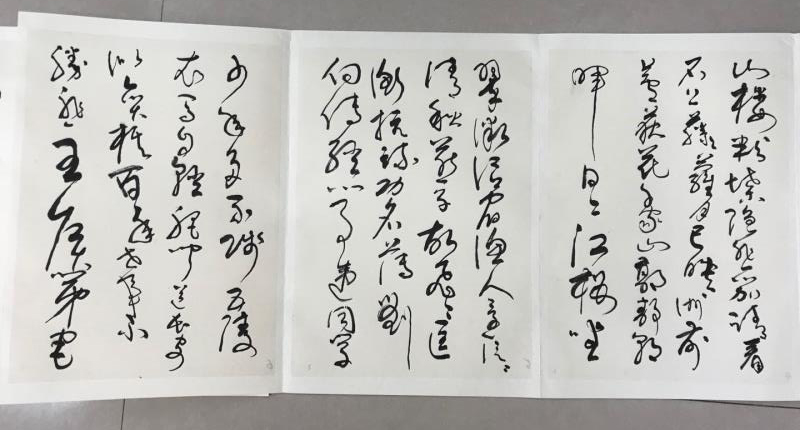 山樓粉堞隱悲笳請看
石上藤蘿月已映洲前
蘆荻花千家山郭靜朝
暉日日江樓坐
翠微信宿漁人還泛泛
清秋燕子故飛飛匡
衡抗疏功名薄劉
向傳經心事違同學
少年多不賤五陵
衣馬自輕肥聞道長安
似弈棋百年世事不
勝悲王侯第宅